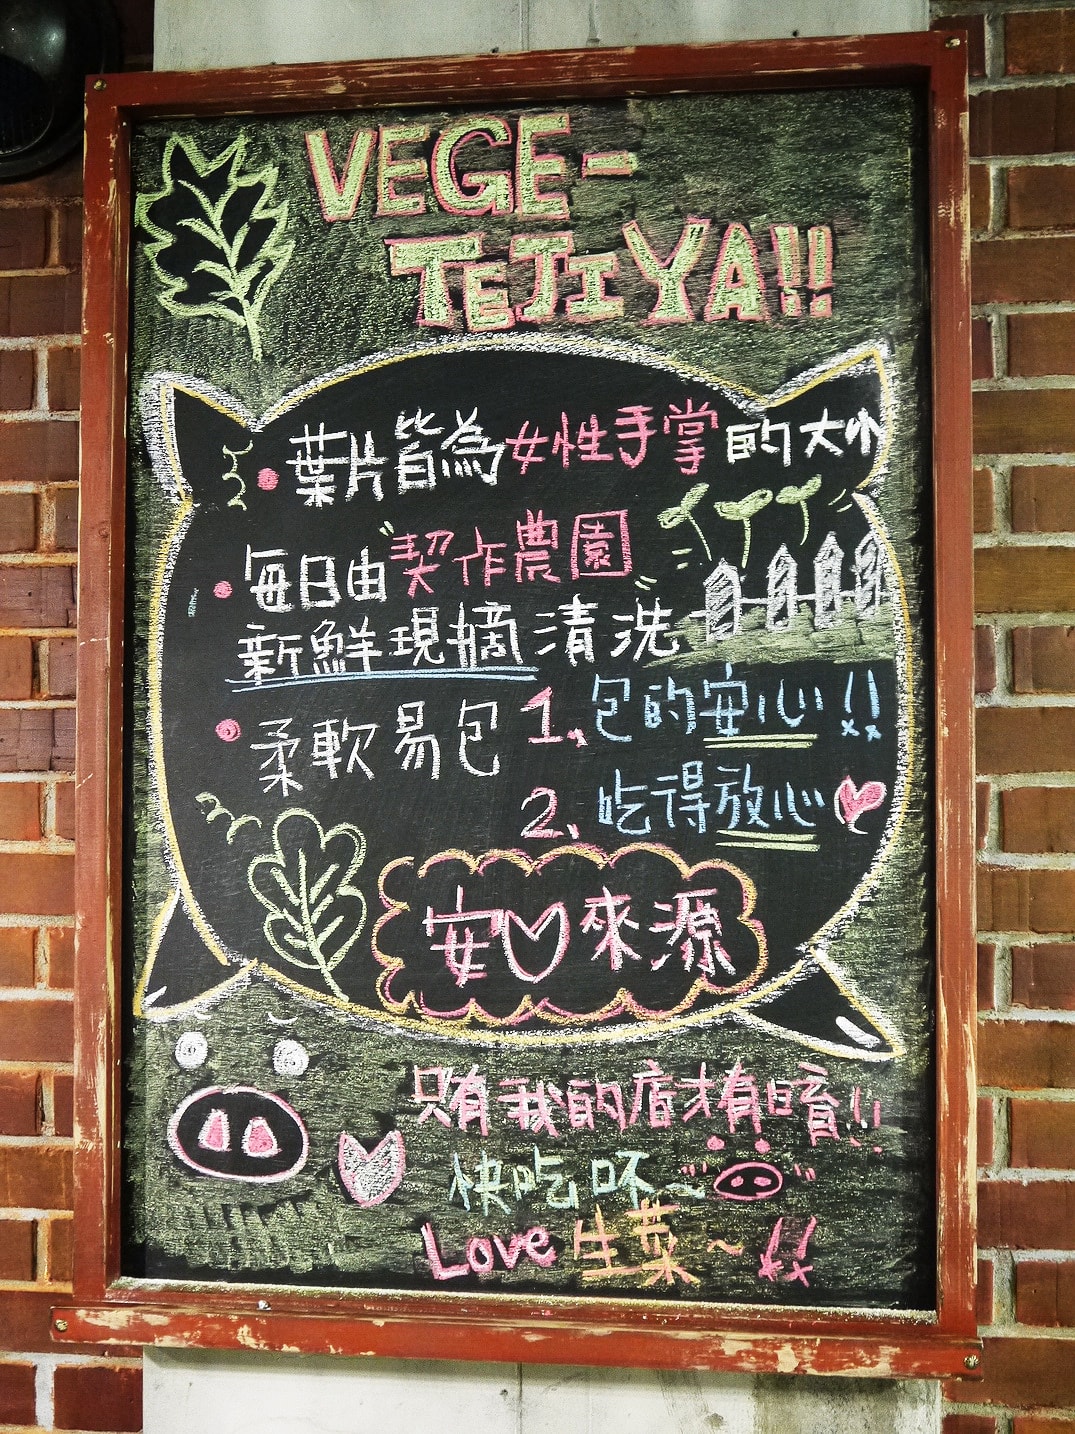 VEGE-
TEJIYA!!
葉片皆為女性手掌的大小
每日由"契作農園"
新鮮現摘清洗
柔軟易包 1. 包的安心!!
2. 吃得放心
安心來源
只有我的店才有唷!!
快吃吥~
Love 生菜~!!